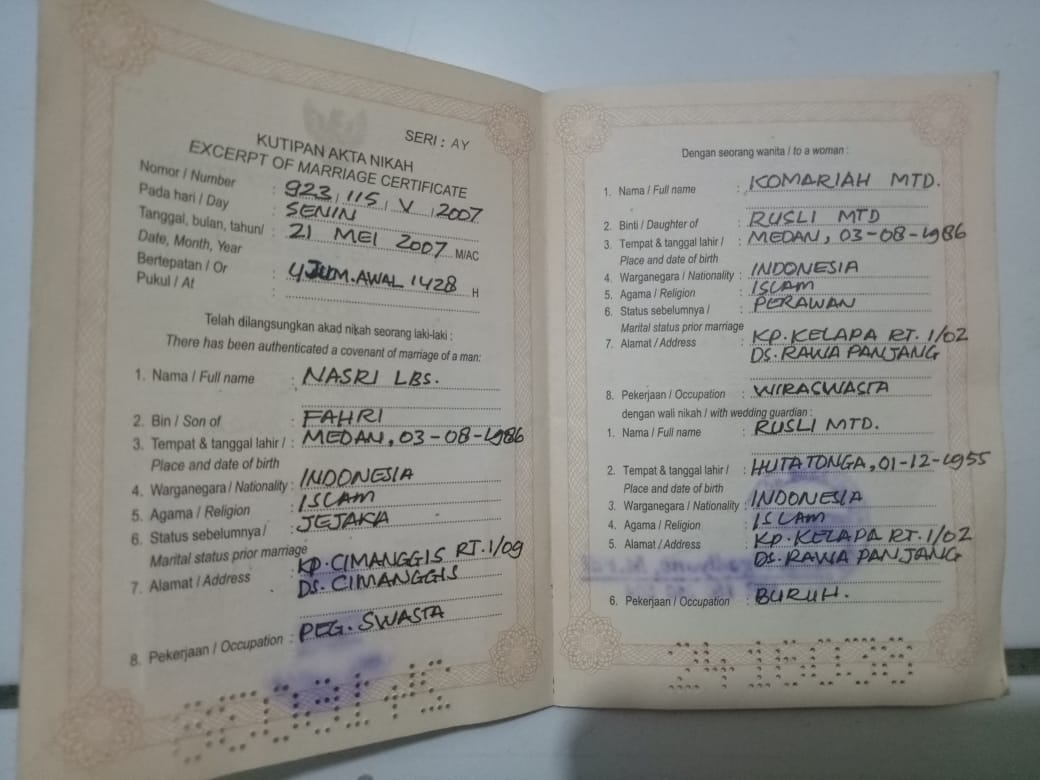 SERI : AY
KUTIPAN AKTA NIKAH
EXCERPT OF MARRIAGE CERTIFICATE
Nomor / Number : 923/115/V/2007
Pada hari / Day : SENIN
Tanggal, bulan, tahun/ : 21 MEI 2007 M/AC
Date, Month, Year
Bertepatan / Or : 4 JUM.AWAL 1428 H
Pukul / At :
Telah dilangsungkan akad nikah seorang laki-laki :
There has been authenticated a covenant of marriage of a man:
1. Nama / Full name : NASRI LBS.
2. Bin / Son of : FAHRI
3. Tempat & tanggal lahir / : MEDAN, 03-08-1986
Place and date of birth
4. Warganegara / Nationality : INDONESIA
5. Agama / Religion : ISLAM
6. Status sebelumnya / : JEJAKA
Marital status prior marriage
7. Alamat / Address : KP. CIMANGGIS RT. 1/09
DS. CIMANGGIS
8. Pekerjaan / Occupation : PEG. SWASTA
Dengan seorang wanita / to a woman :
1. Nama / Full name : KOMARIAH MTD.
2. Binti / Daughter of : RUSLI MTD
3. Tempat & tanggal lahir / : MEDAN, 03-08-1986
Place and date of birth
4. Warganegara / Nationality : INDONESIA
5. Agama / Religion : ISLAM
6. Status sebelumnya / : PERAWAN
Marital status prior marriage
7. Alamat / Address : KP. KELAPA RT. 1/02
DS. RAWA PANJANG
8. Pekerjaan / Occupation : WIRASWASTA
dengan wali nikah / with wedding guardian :
1. Nama / Full name : RUSLI MTD.
2. Tempat & tanggal lahir / : HUTATONGA, 01-12-1955
Place and date of birth
3. Warganegara / Nationality : INDONESIA
4. Agama / Religion : ISLAM
5. Alamat / Address : KP. KELAPA RT. 1/02
DS. RAWA PANJANG
6. Pekerjaan / Occupation : BURUH.